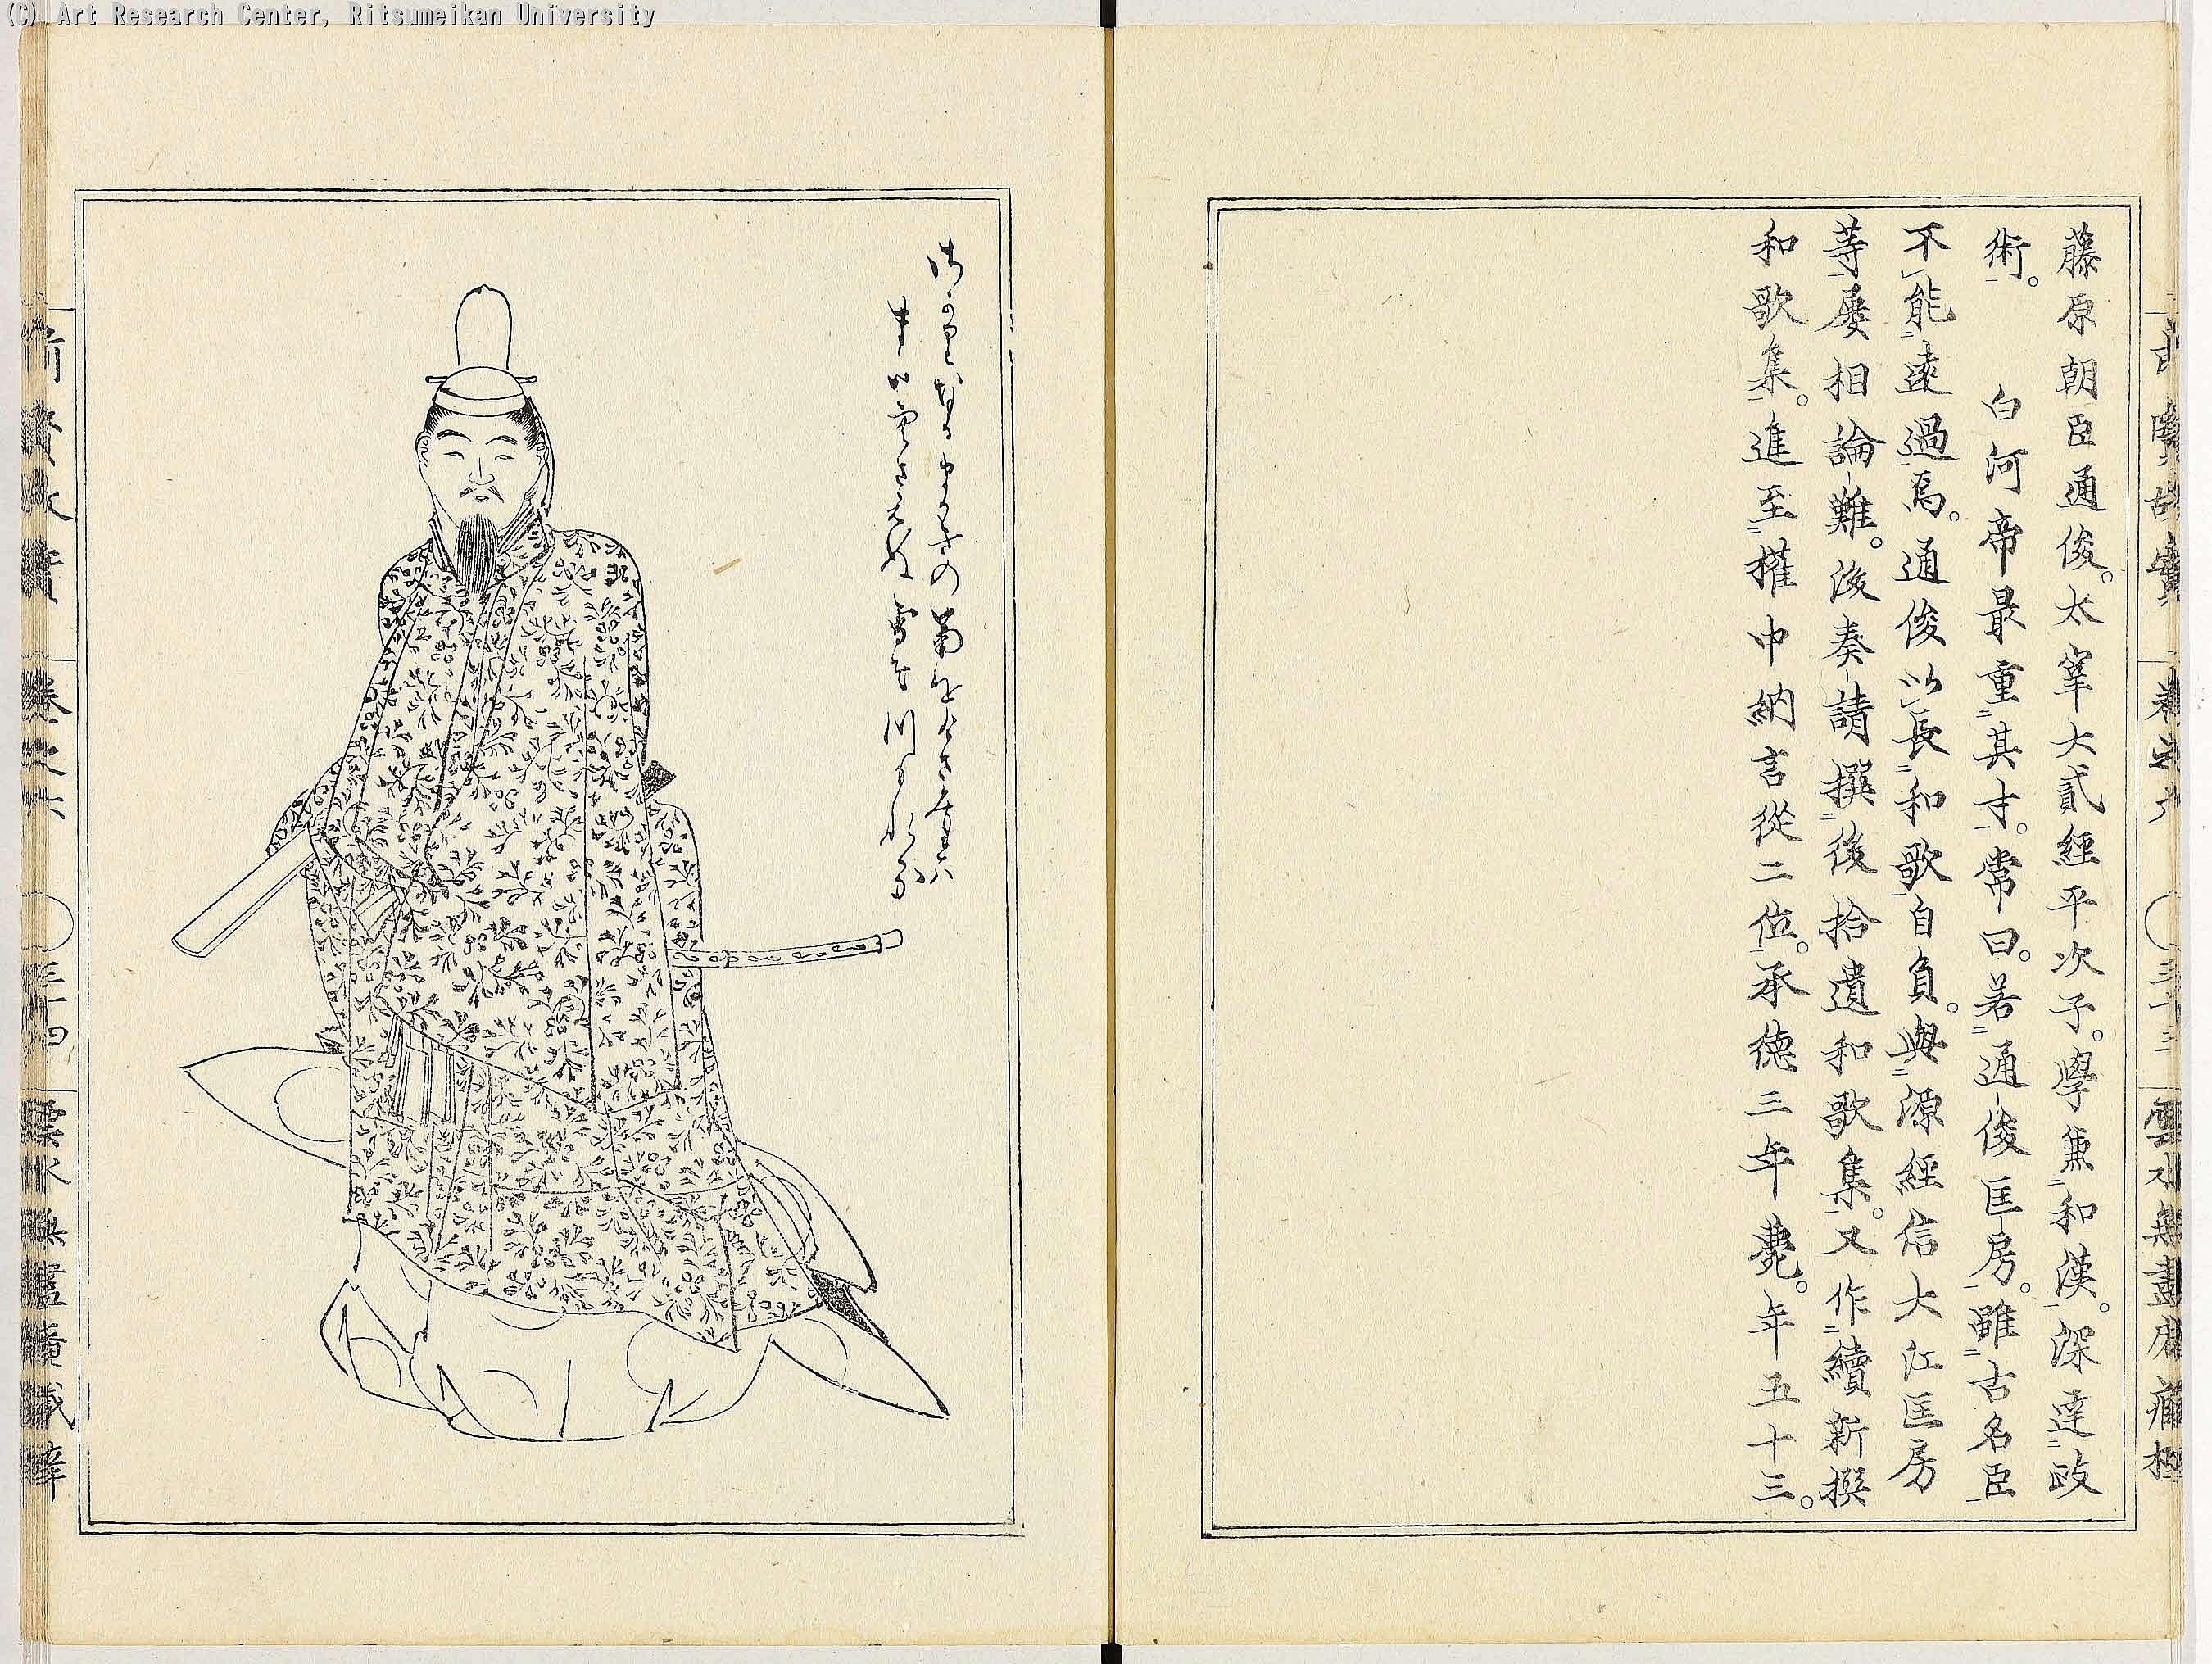 (C) Art Research Center, Ritsumeikan University
前賢故實 卷之六 〇三十三 雲水無盡菴藏梓
藤原朝臣通俊。太宰大貳經平次子。學兼和漢。深達政
術。 白河帝最重其才。常曰。若通俊匡房。雖古名臣
不能遠過焉。通俊以長和歌自負。與源經信大江匡房
等屡相論難。後奏請撰後拾遺和歌集。又作續新撰
和歌集。進至權中納言從二位。承德三年薨。年五十三。
前賢故實 卷之六 〇三十四 雲水無盡菴藏梓